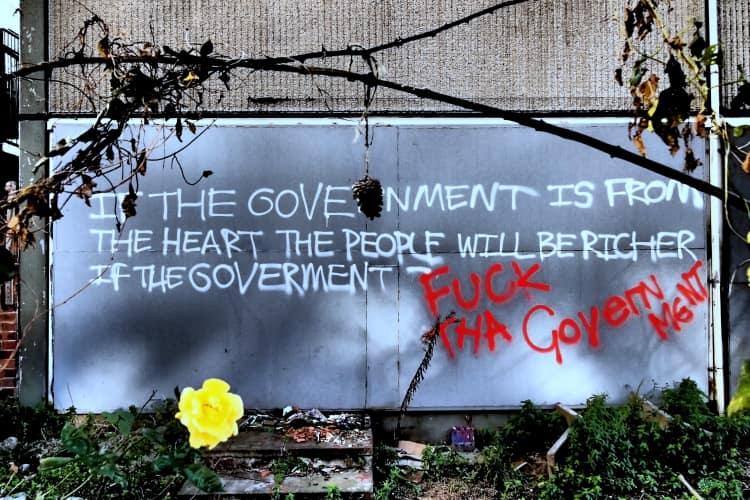 IF THE GOVERNMENT IS FROM
THE HEART THE PEOPLE WILL BE RICHER
IF THE GOVERMENT
FUCK
THA GOVERNMENT